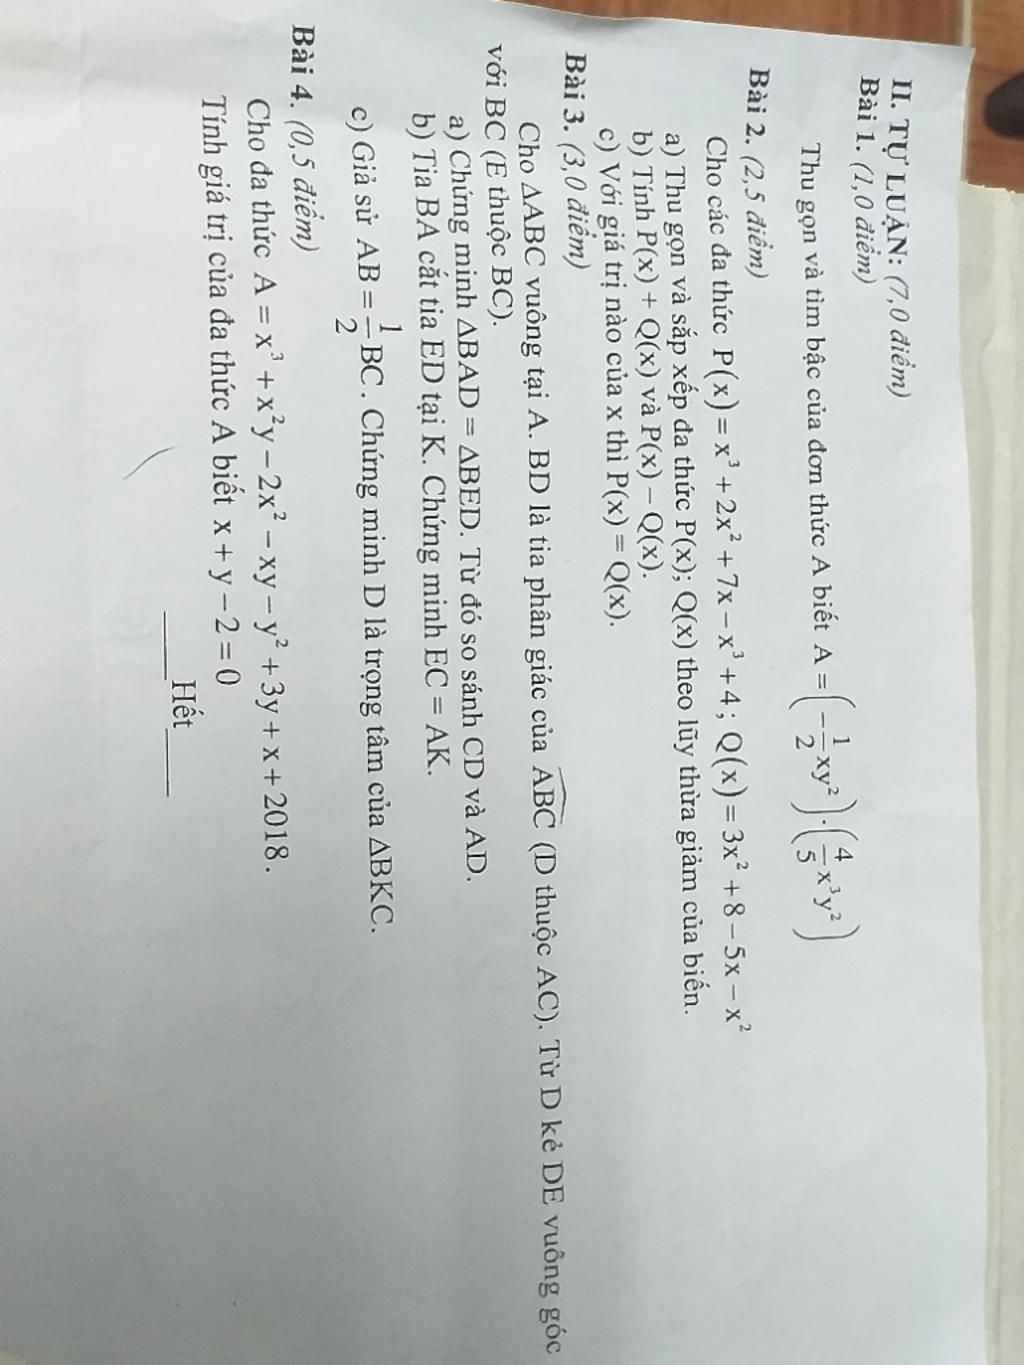 II. TỰ LUẬN: (7,0 điểm)
Bài 1. (1,0 điểm)
Thu gọn và tìm bậc của đơn thức A biết A = (−1/2 xy²).(4/5 x³y²)
Bài 2. (2,5 điểm)
Cho các đa thức P(x) = x³ + 2x² + 7x − x³ + 4 ; Q(x) = 3x² + 8 − 5x − x²
a) Thu gọn và sắp xếp đa thức P(x); Q(x) theo lũy thừa giảm của biến.
b) Tính P(x) + Q(x) và P(x) − Q(x).
c) Với giá trị nào của x thì P(x) = Q(x).
Bài 3. (3,0 điểm)
Cho ΔABC vuông tại A. BD là tia phân giác của ABC (D thuộc AC). Từ D kẻ DE vuông góc
với BC (E thuộc BC).
a) Chứng minh ΔBAD = ΔBED. Từ đó so sánh CD và AD.
b) Tia BA cắt tia ED tại K. Chứng minh EC = AK.
c) Giả sử AB = 1/2 BC . Chứng minh D là trọng tâm của ΔBKC.
Bài 4. (0,5 điểm)
Cho đa thức A = x³ + x²y − 2x² − xy − y² + 3y + x + 2018 .
Tính giá trị của đa thức A biết x + y − 2 = 0
____Hết____